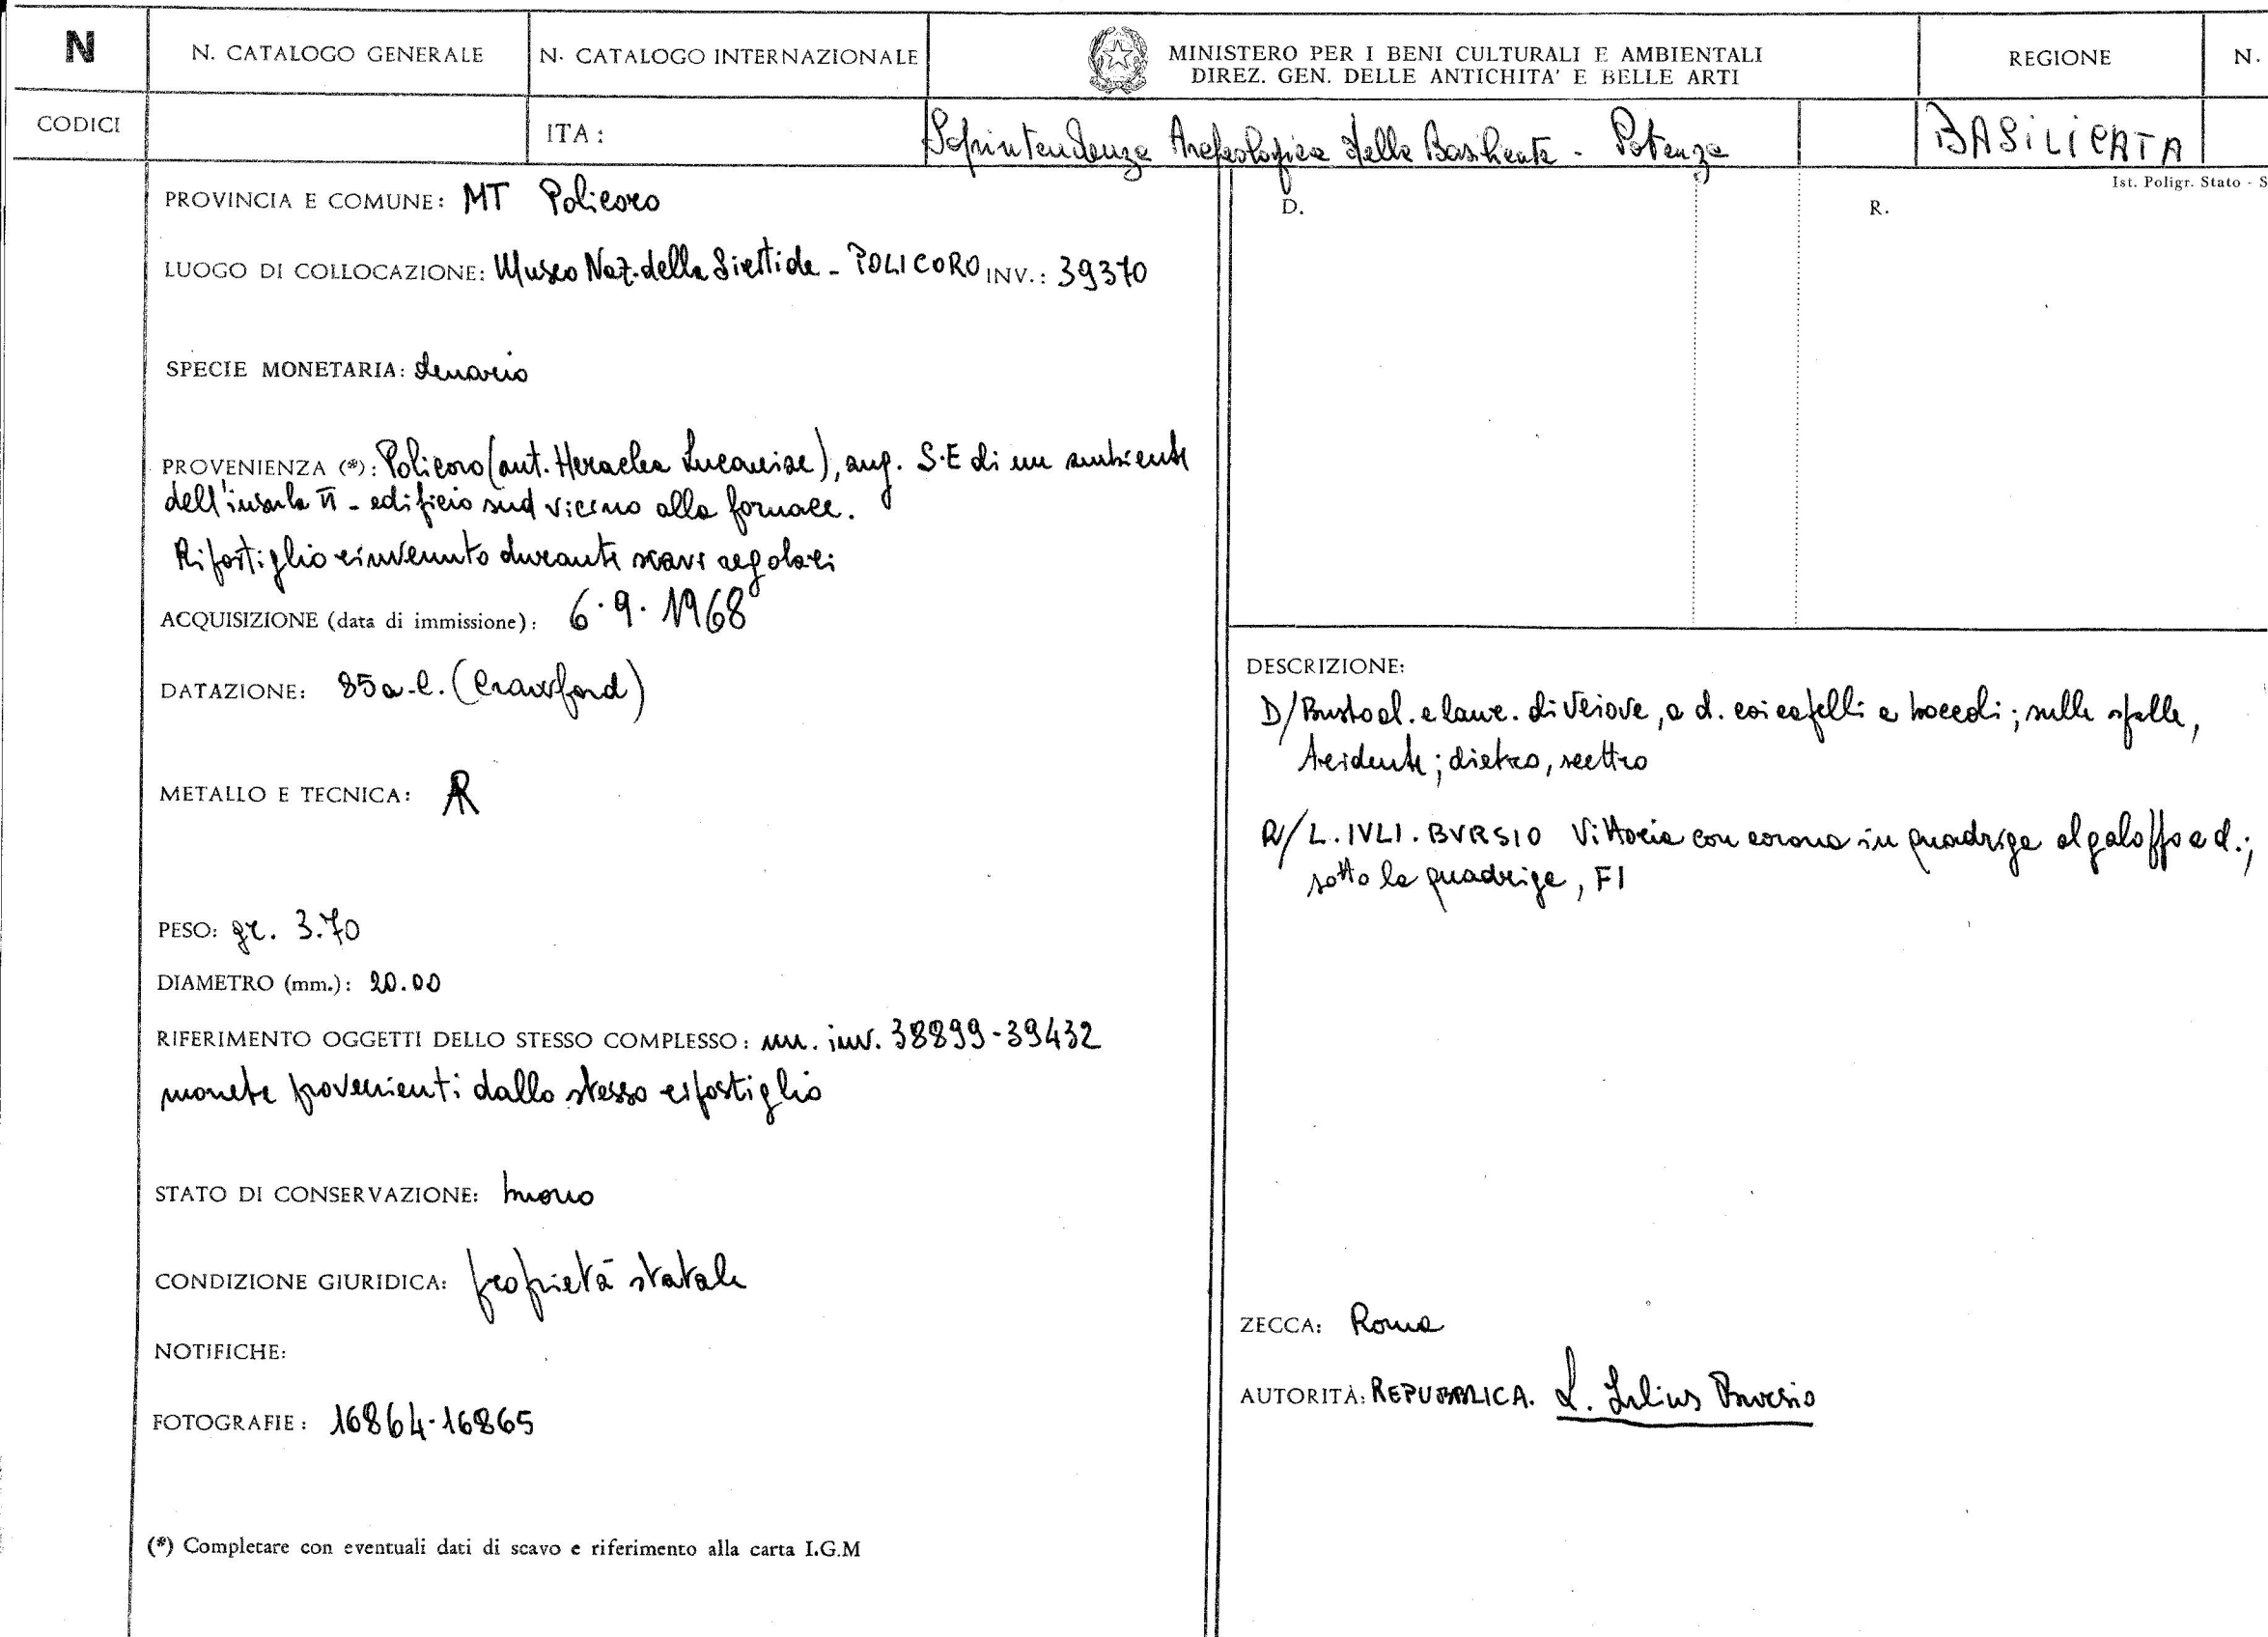 N
N. CATALOGO GENERALE
N. CATALOGO INTERNAZIONALE
MINISTERO PER I BENI CULTURALI E AMBIENTALI
DIREZ. GEN. DELLE ANTICHITA' E BELLE ARTI
REGIONE
N.
CODICI
ITA:
Soprintendenza Archeologica della Basilicata - Potenza
BASILICATA
Ist. Poligr. Stato - S
PROVINCIA E COMUNE: MT Policoro
LUOGO DI COLLOCAZIONE: Museo Naz. della Siritide - POLICORO INV.: 39370
SPECIE MONETARIA: denario
PROVENIENZA (*): Policoro (ant. Heraclea Lucaniae), ang. S.E di un ambiente
dell'insula II - edificio sud vicino alla fornace.
Ripostiglio rinvenuto durante scavi regolari
ACQUISIZIONE (data di immissione): 6.9.1968
DATAZIONE: 85 a.C. (Crawford)
METALLO E TECNICA: AR
PESO: gr. 3.70
DIAMETRO (mm.): 20.00
RIFERIMENTO OGGETTI DELLO STESSO COMPLESSO: nn. inv. 38899-39432
monete provenienti dallo stesso ripostiglio
STATO DI CONSERVAZIONE: buono
CONDIZIONE GIURIDICA: proprietà statale
NOTIFICHE:
FOTOGRAFIE: 16864-16865
(*) Completare con eventuali dati di scavo e riferimento alla carta I.G.M
D.
R.
DESCRIZIONE:
D/ Busto al. e laur. di Veiove, a d. coi capelli a boccoli; sulle spalle,
tridente; dietro, scettro
R/ L.IVLI.BVRSIO Vittoria con corona in quadriga al galoppo a d.;
sotto la quadriga, FI
ZECCA: Roma
AUTORITÀ: REPUBBLICA. L. Iulius Bursio